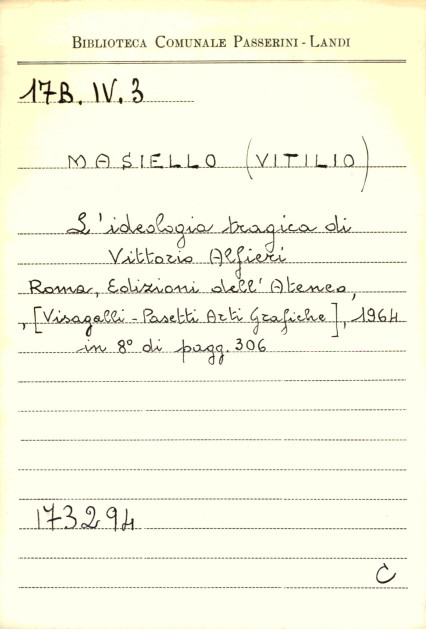 BIBLIOTECA COMUNALE PASSERINI - LANDI
17B. IV. 3
MASIELLO (VITILIO)
L'ideologia tragica di
Vittorio Alfieri
Roma, Edizioni dell'Ateneo,
, [Visagalli - Pasetti Arti Grafiche], 1964
in 8° di pagg. 306
173294
C